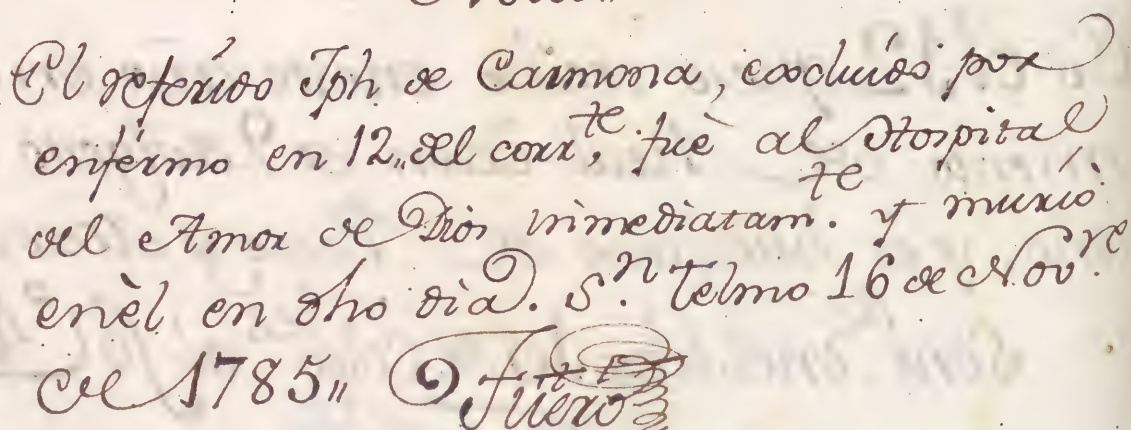 El referido Jph. de Carmona, excluído por
enfermo en 12,, del corr.te, fuè al Hospital
del Amor de Dios inmediatam.te y murió
en èl en dho dia. S.n Telmo 16 de Nov.re
de 1785,, Fuero